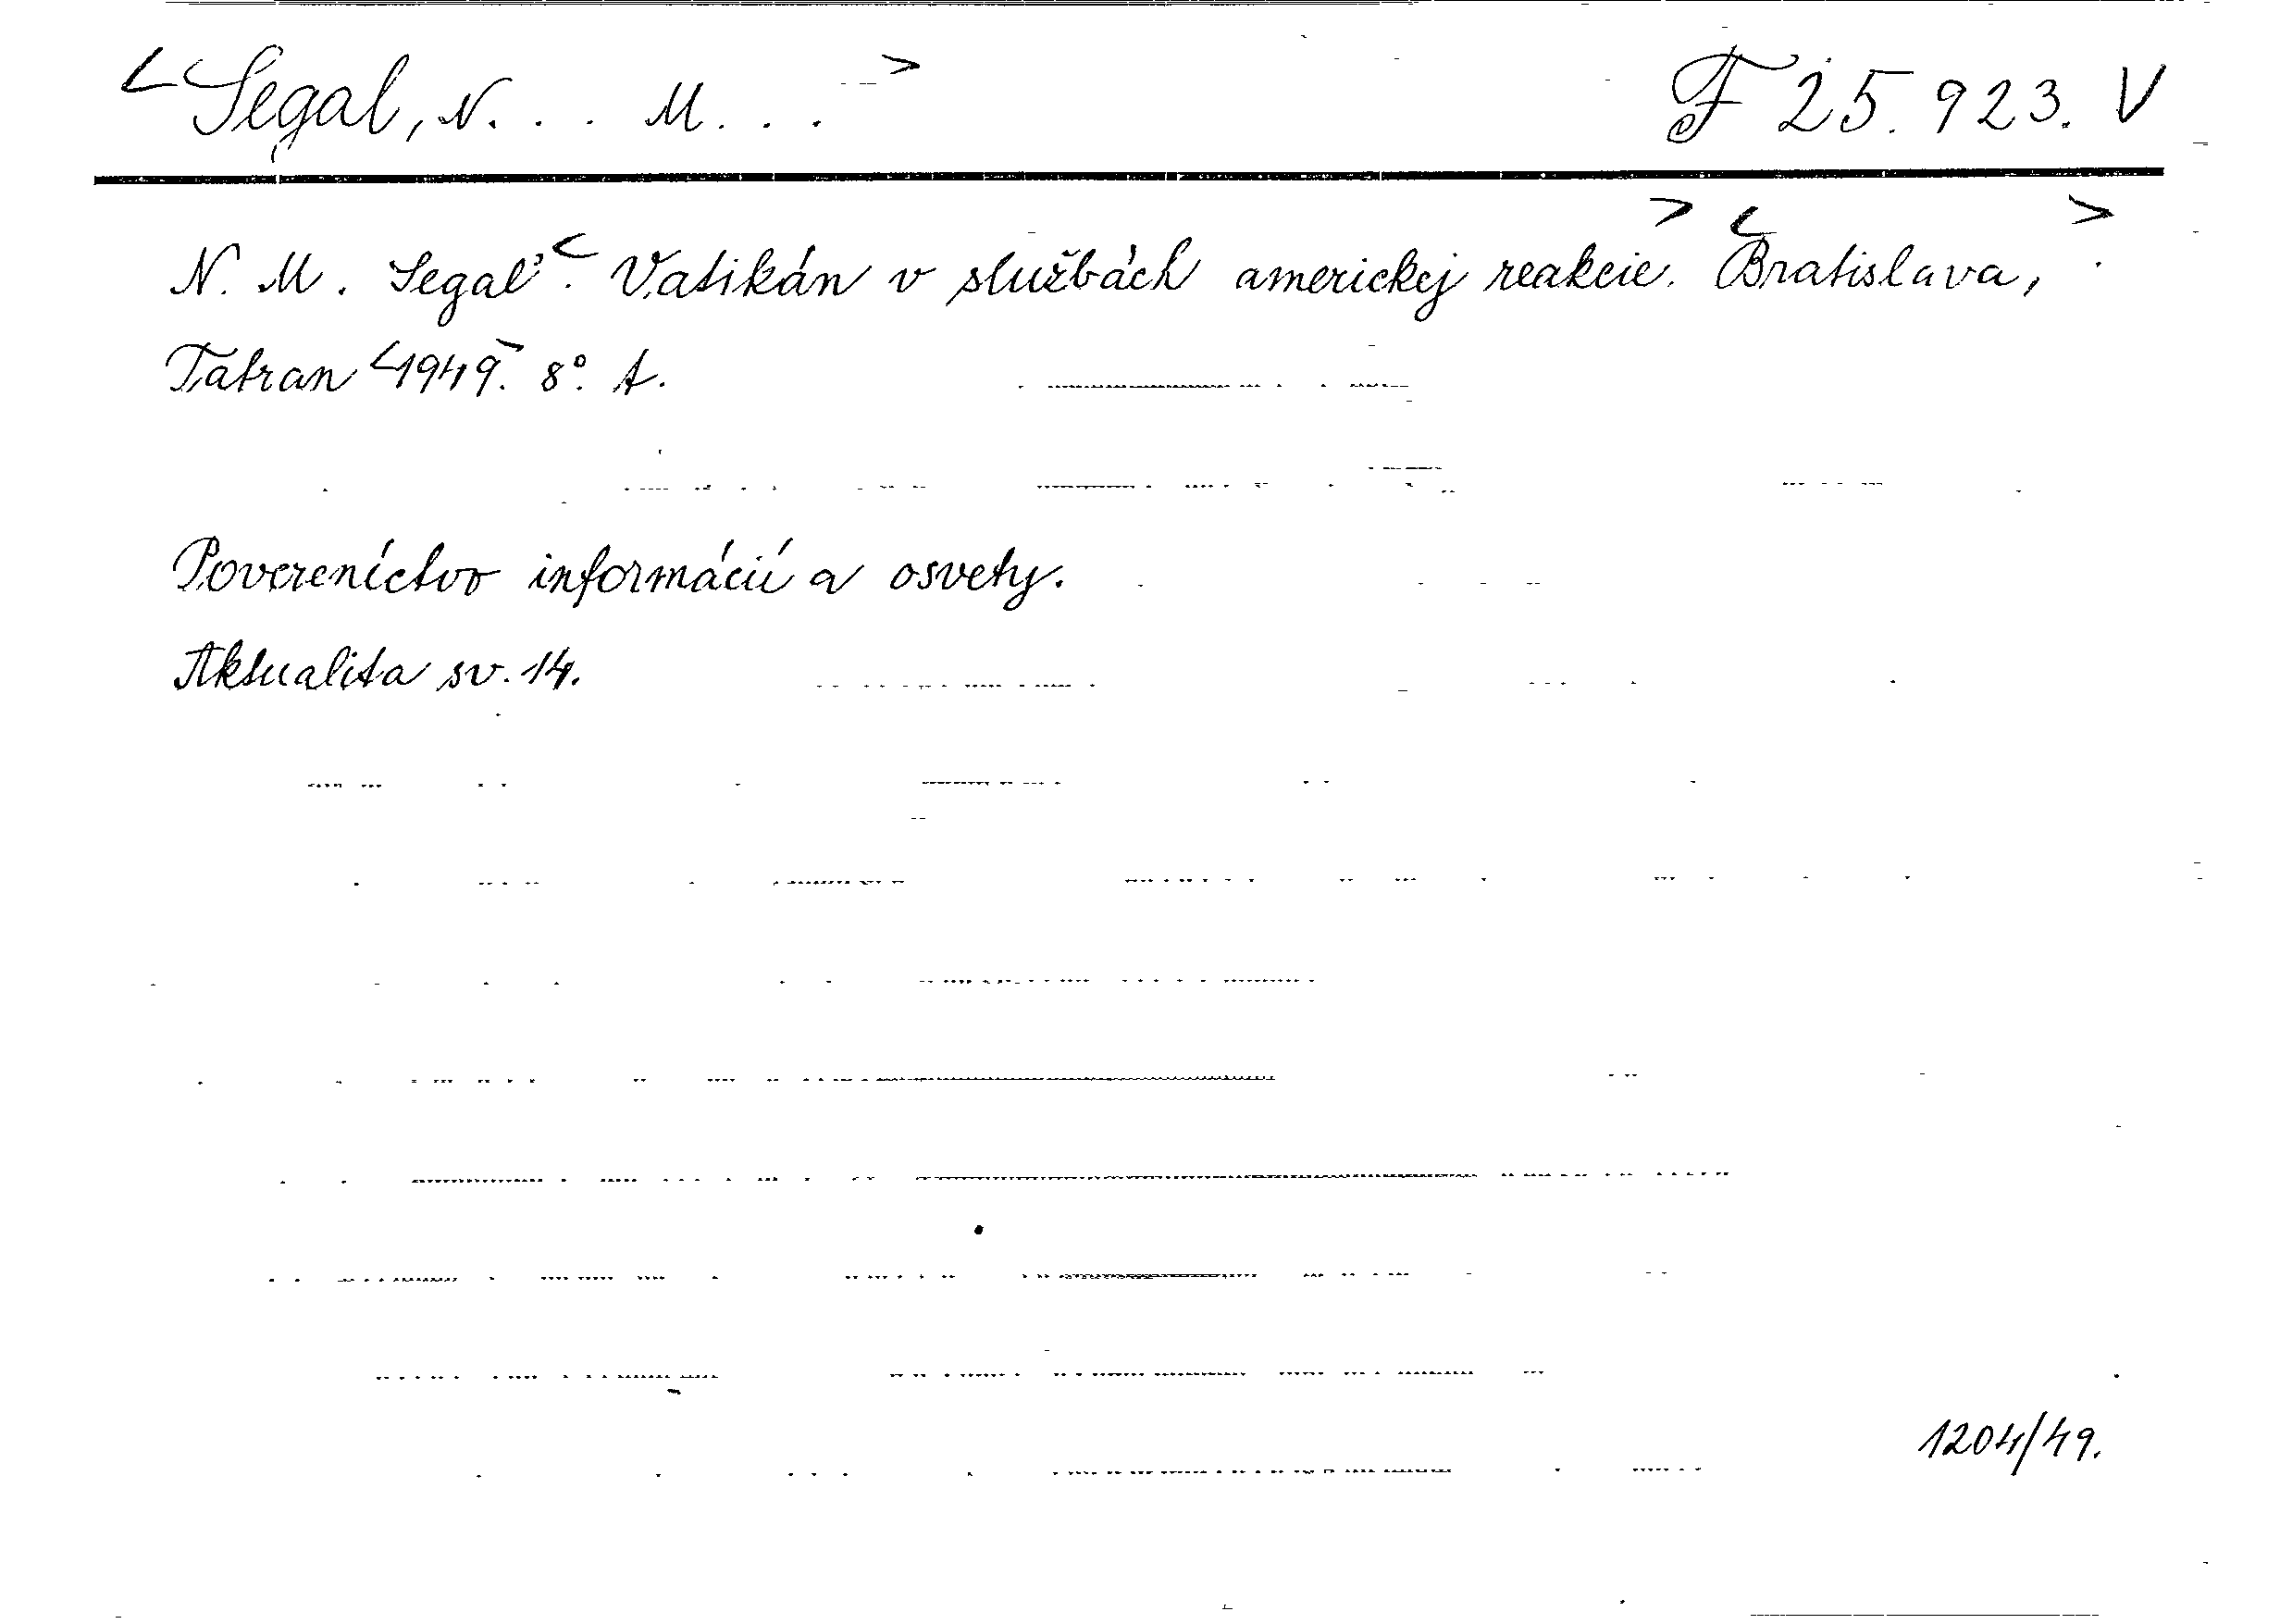 <Segal, N. . . M. . .> F 25.923. V
N. M. Segaľ: <Vatikán v službách americkej reakcie.> <Bratislava,>
Tatran <1949.> 8°. t.
Povereníctvo informácií a osvety.
Aktualita sv. 14.
1204/49.